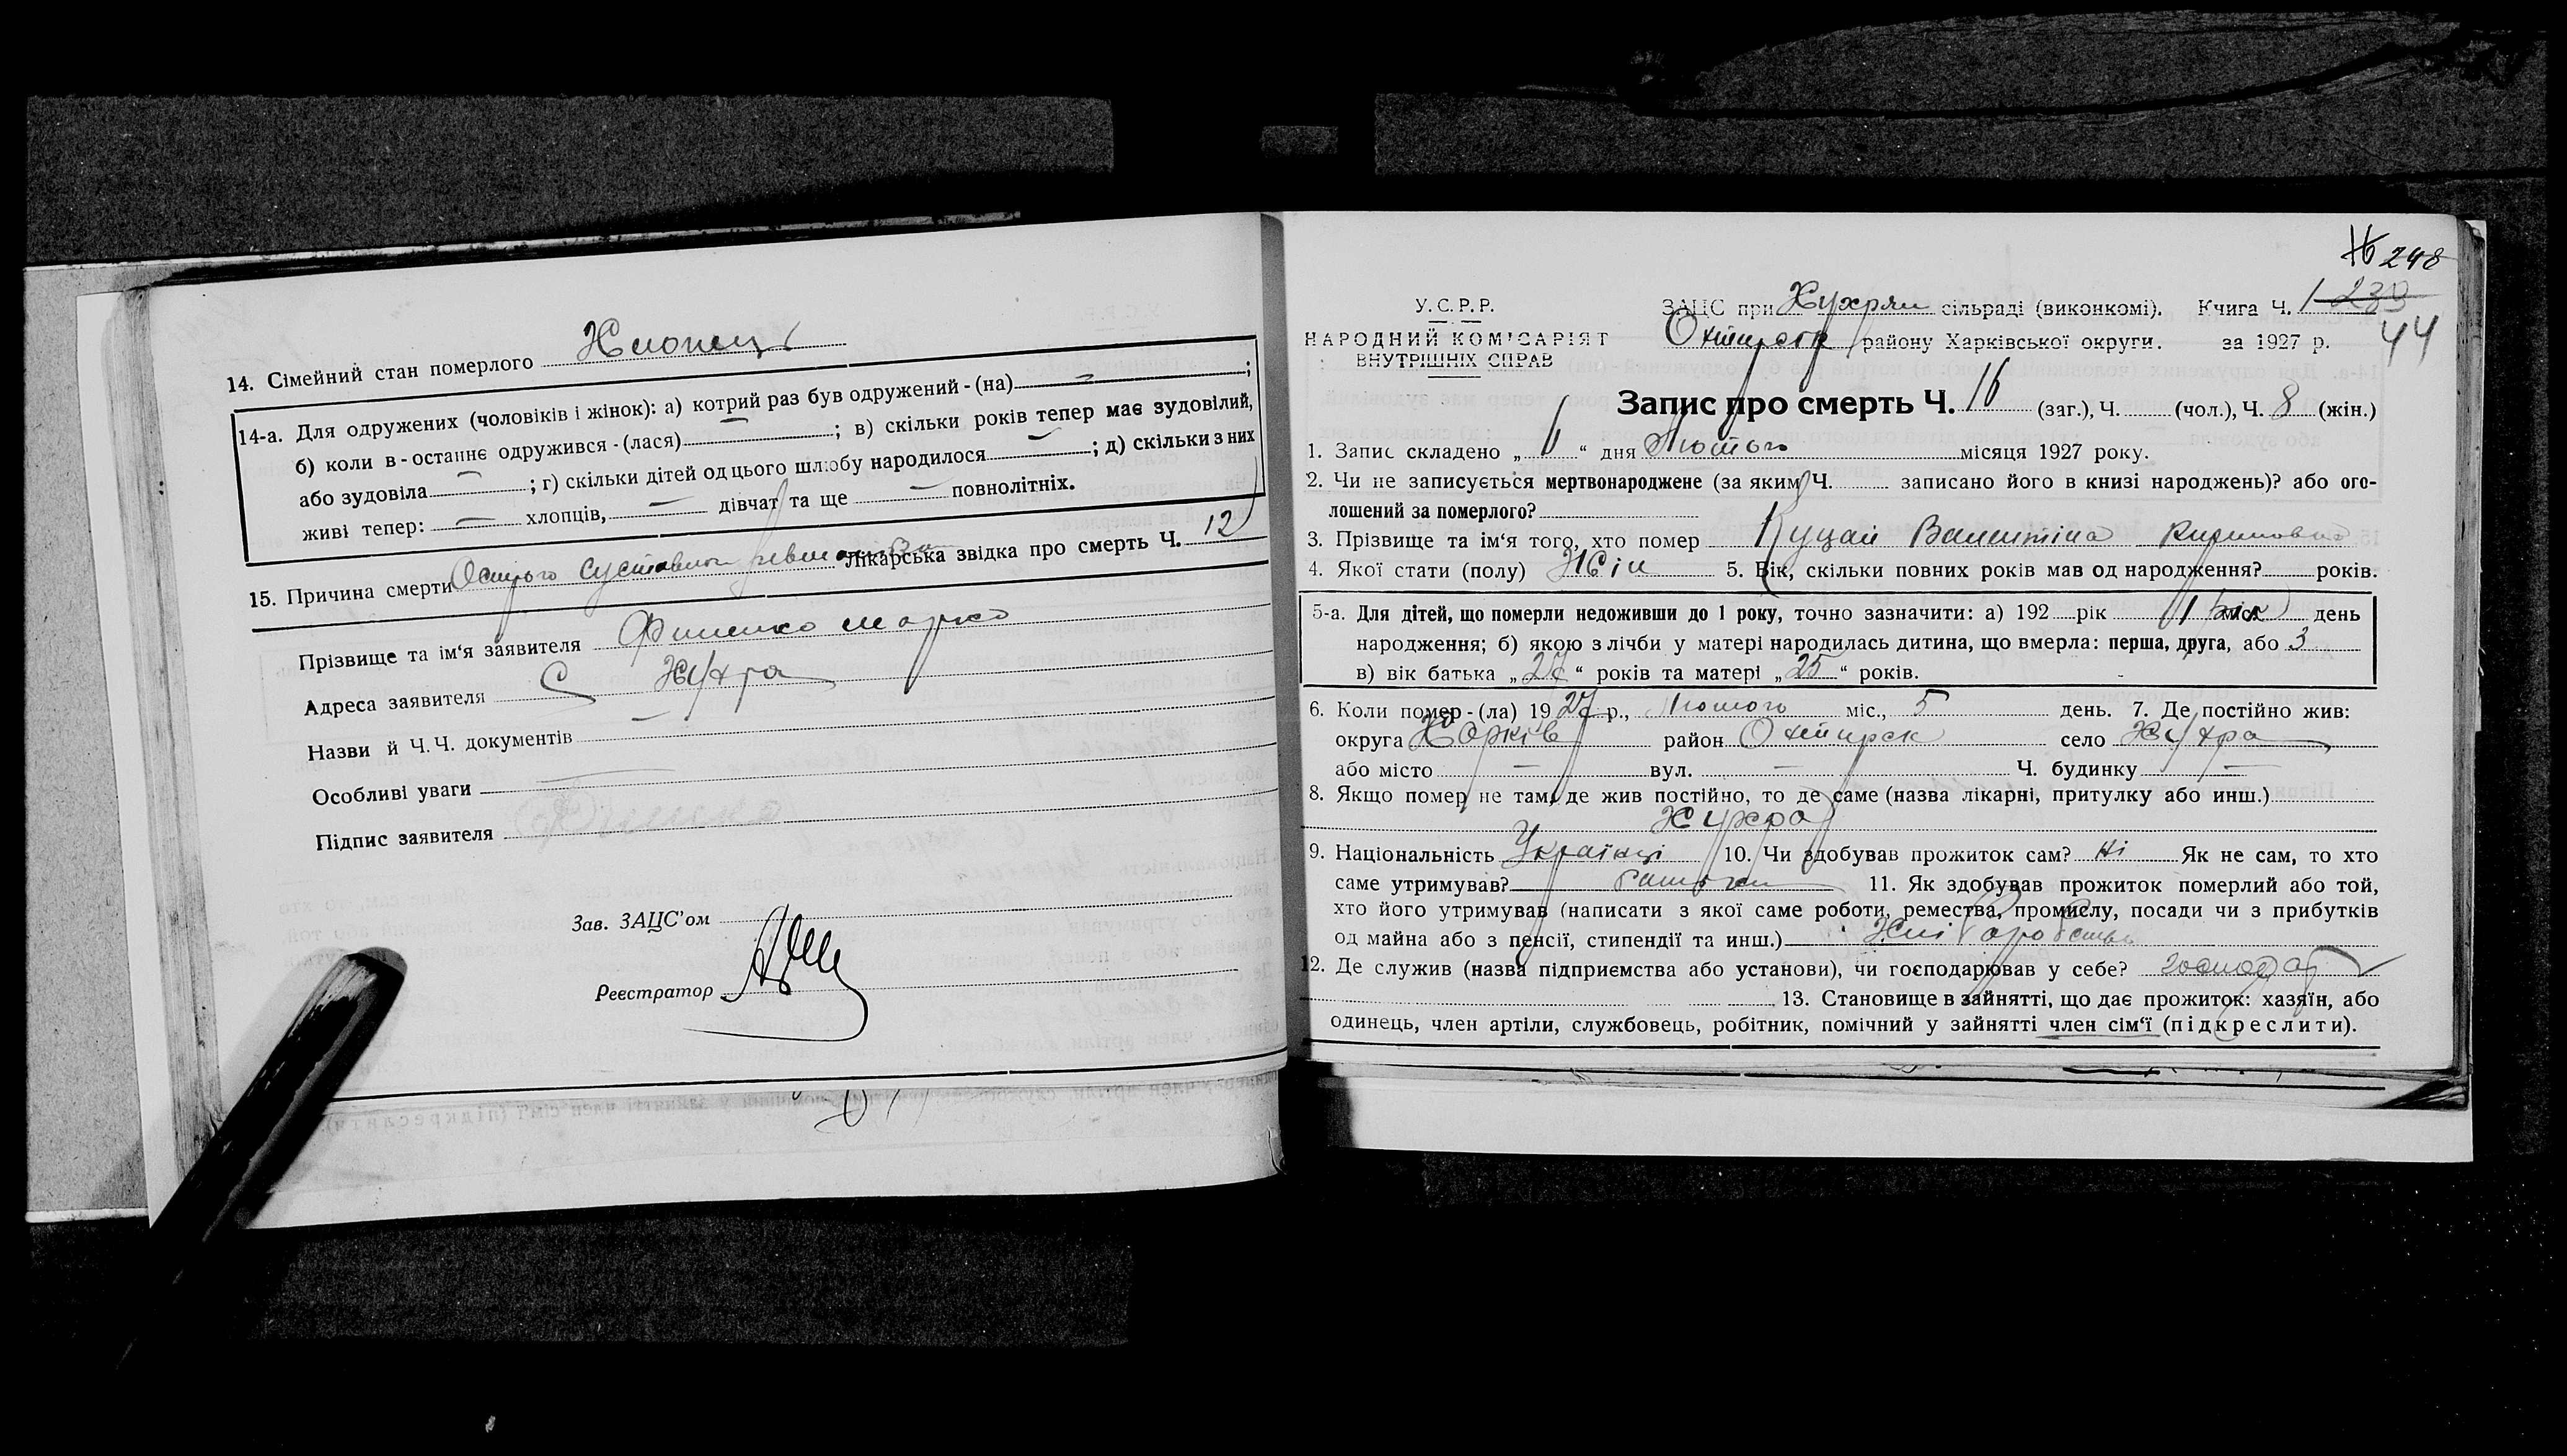 14. Сімейний стан померлого Хлопець
14-а. Для одружених (чоловіків і жінок): а) котрий раз був одружений - (на) — ;
б) коли в - останнє одружився - (лася) — ; в) скільки років тепер має зудовілий,
або зудовіла — ; г) скільки дітей од цього шлюбу народилося — ; д) скільки з них
живі тепер: — хлопців, — дівчат та ще — повнолітніх.
15. Причина смерти Острого суставного ревматизма Лікарська звідка про смерть Ч. 12
Прізвище та ім'я заявителя Фименко Марко
Адреса заявителя С Хухра
Назви й Ч. Ч. документів —
Особливі уваги —
Підпис заявителя
Зав. ЗАЦС'ом
Реєстратор
16 248
У. С. Р. Р. ЗАЦС при Хухрян сільраді (виконкомі). Кчига Ч. 1 239
НАРОДНИЙ КОМІСАРІЯТ Охтирськ району Харківської округи. за 1927 р. 44
ВНУТРІШНІХ СПРАВ
Запис про смерть Ч. 16 (заг.), Ч. (чол.), Ч. 8 (жін.)
1. Запис складено „ 6 “ дня Лютого місяця 1927 року.
2. Чи не записується мертвонароджене (за яким Ч. записано його в книзі народжень)? або ого-
лошений за померлого?
3. Прізвище та ім'я того, хто помер Куцай Валентіна Кириловна
4. Якої стати (полу) Жін 5. Вік, скільки повних років мав од народження? років.
5-а. Для дітей, що померли недоживши до 1 року, точно зазначити: а) 192 рік 1 міс. день
народження; б) якою з лічби у матері народилась дитина, що вмерла: перша, друга, або 3
в) вік батька „ 27 “ років та матері „ 25 “ років.
6. Коли помер - (ла) 1927 р., Лютого міс., 5 день. 7. Де постійно жив:
округа Харків район Охтирск село Хухра
або місто — вул. — Ч. будинку —
8. Якщо помер не там, де жив постійно, то де саме (назва лікарні, притулку або инш.)
Хухра
9. Національність Українці 10. Чи здобував прожиток сам? Ні Як не сам, то хто
саме утримував? батьки 11. Як здобував прожиток померлий або той,
хто його утримував (написати з якої саме роботи, ремества, промислу, посади чи з прибутків
од майна або з пенсії, стипендії та инш.) Хліборобства
12. Де служив (назва підприємства або установи), чи господарював у себе? господар
13. Становище в зайнятті, що дає прожиток: хазяїн, або
одинець, член артіли, службовець, робітник, помічний у зайнятті член сім'ї (підкреслити).